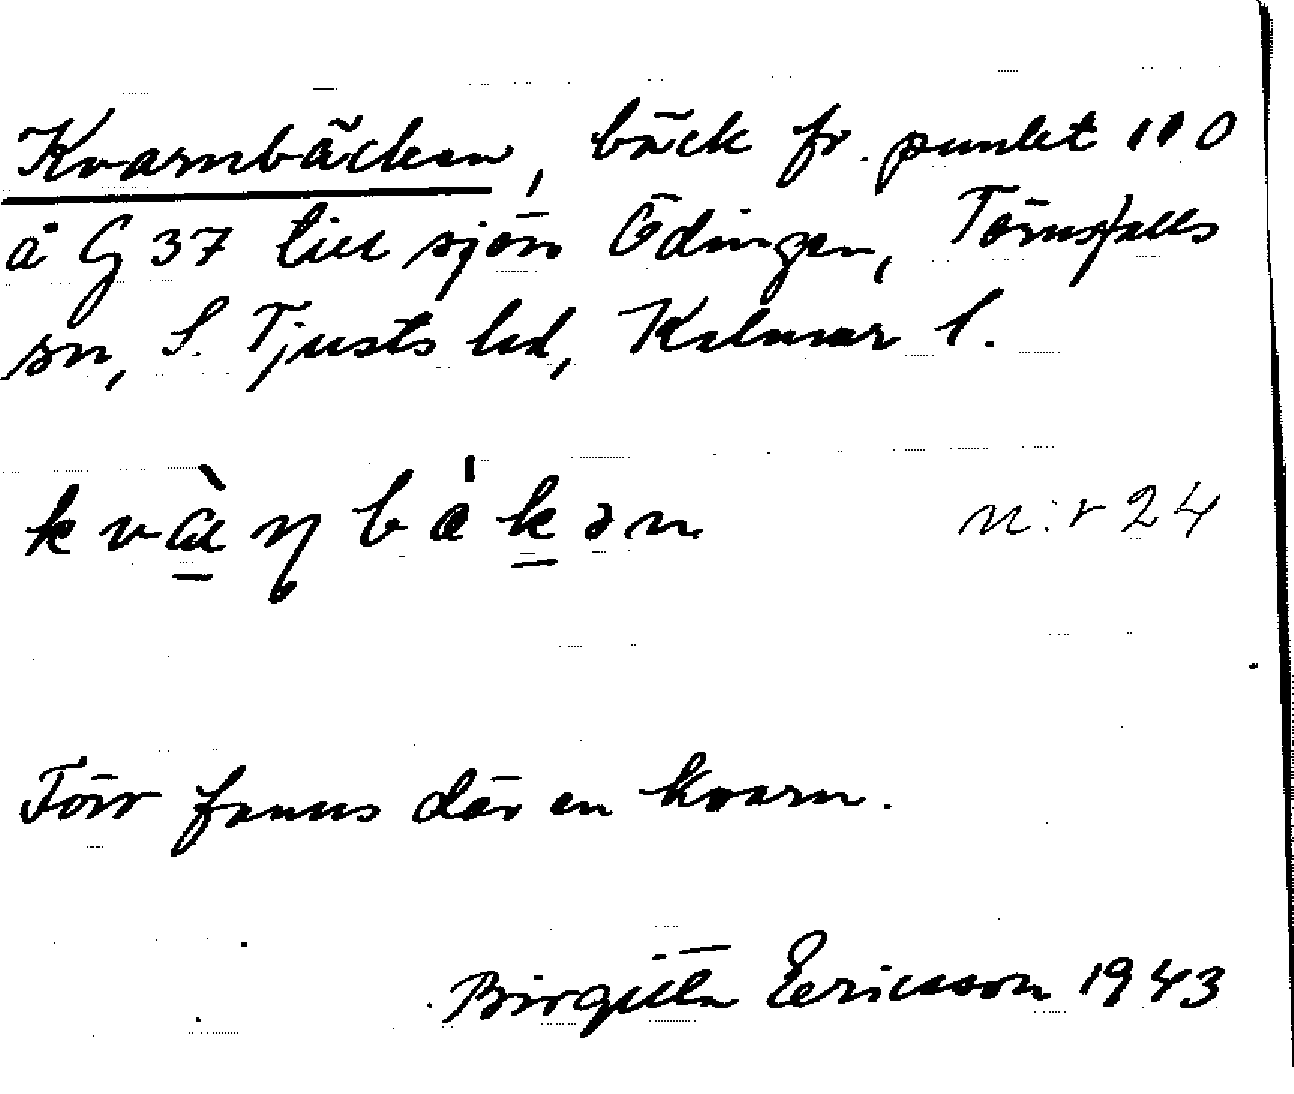 Kvarnbäcken, bäck fr. punkt 110
å G 37 till sjön Ödingen, Törnsfalls
sn, S. Tjusts hd, Kalmar l.
kvàɳbækən n:r 24
Förr fanns där en kvarn.
Birgitta Ericsson 1943